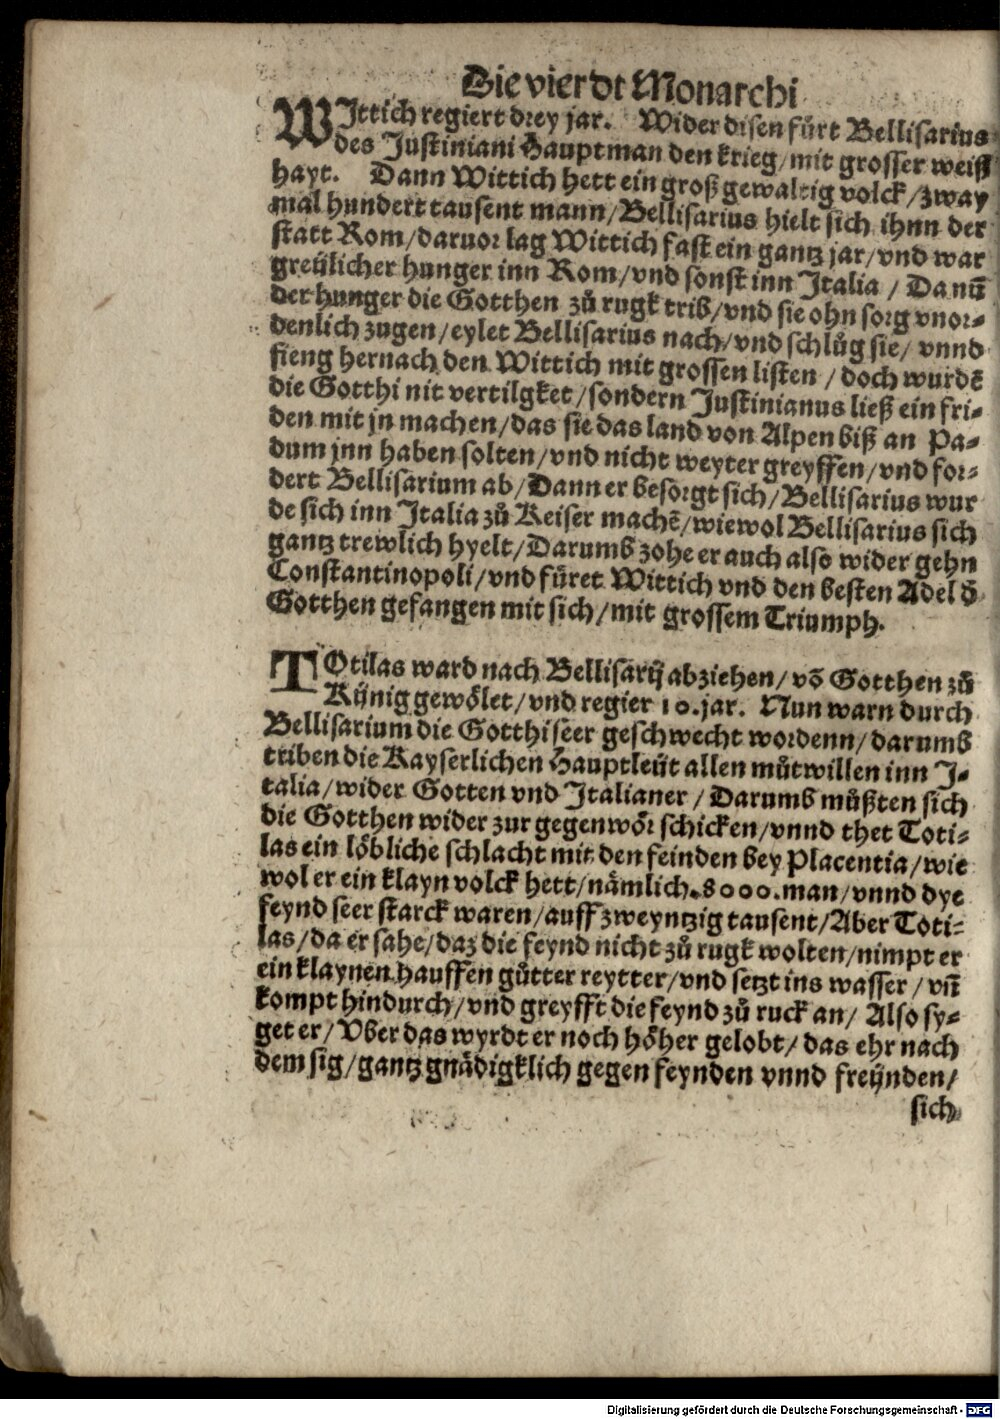 Die vierdt Monarchi
WIttich regiert drey jar. Wider disen fürt Bellisarius
des Justiniani Hauptman den krieg/mit grosser weiß
hayt. Dann Wittich hett ein groß gewaltig volck/zway
mal hundert tausent mann/Bellisarius hielt sich ihnn der
statt Rom/daruor lag Wittich fast ein gantz jar/vnd war
greülicher hunger inn Rom/vnd sonst inn Italia / Da nūn
der hunger die Gotthen zů rugk trib/vnd sie ohn sorg vnor⸗
denlich zugen/eylet Bellisarius nach/vnd schlůg sie/ vnnd
fieng hernach den Wittich mit grossen listen / doch wurdē
die Gotthi nit vertilgket/sondern Justinianus ließ ein fri⸗
den mit jn machen/das sie das land von Alpen biß an Pa⸗
dum jnn haben solten/vnd nicht weyter greyffen/vnd for⸗
dert Bellisarium ab/Dann er besorgt sich/Bellisarius wur
de sich inn Italia zů Keiser machē/wiewol Bellisarius sich
gantz trewlich hyelt/Darumb zohe er auch also wider gehn
Constantinopoli/vnd füret Wittich vnd den besten Adel d̄
Gotthen gefangen mit sich/mit grossem Triumph.
TOtilas ward nach Bellisarij abziehen/ vō Gotthen zů
Künig gewölet/vnd regier 10.jar. Nun warn durch
Bellisarium die Gotthi seer geschwecht wordenn/darumb
triben die Kayserlichen Hauptleüt allen můtwillen inn J⸗
talia/wider Gotten vnd Italianer / Darumb můßten sich
die Gotthen wider zur gegenwör schicken/vnnd thet Toti⸗
las ein löbliche schlacht mit den feinden bey Placentia/wie
wol er ein klayn volck hett/nämlich.8000.man/vnnd dye
feynd seer starck waren/auff zweyntzig tausent/Aber Toti⸗
las/da er sahe/daz die feynd nicht zů rugk wolten/nimpt er
ein klaynen hauffen gůtter reytter/vnd setzt ins wasser/ vñ
kompt hindurch/vnd greyfft die feynd zů ruck an/ Also sy⸗
get er/ Vber das wyrdt er noch höher gelobt/das ehr nach
dem sig/gantz gnädigklich gegen feynden vnnd freünden/
sich
Digitalisierung gefördert durch die Deutsche Forschungsgemeinschaft - DFG